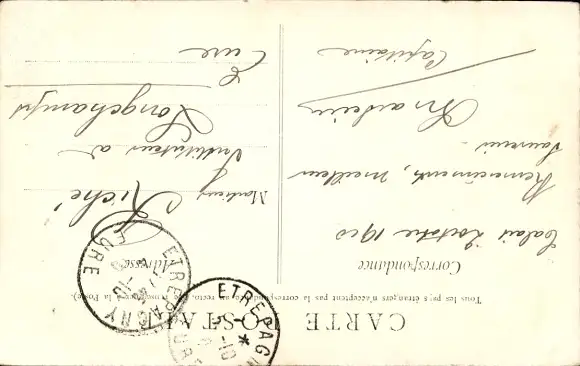 CARTE POSTALE
Tous les pays étrangers n'acceptent pas la correspondance au recto, (se renseigner à la Poste).
Correspondance
Adresse
Calais 2 octobre 1910
Remerciements, meilleur
souvenir
Capitaine
Monsieur Riché
Instituteur à
Longchamps
Eure
ETREPAGNY
EURE
ETREPAGNY
EURE
5 -10